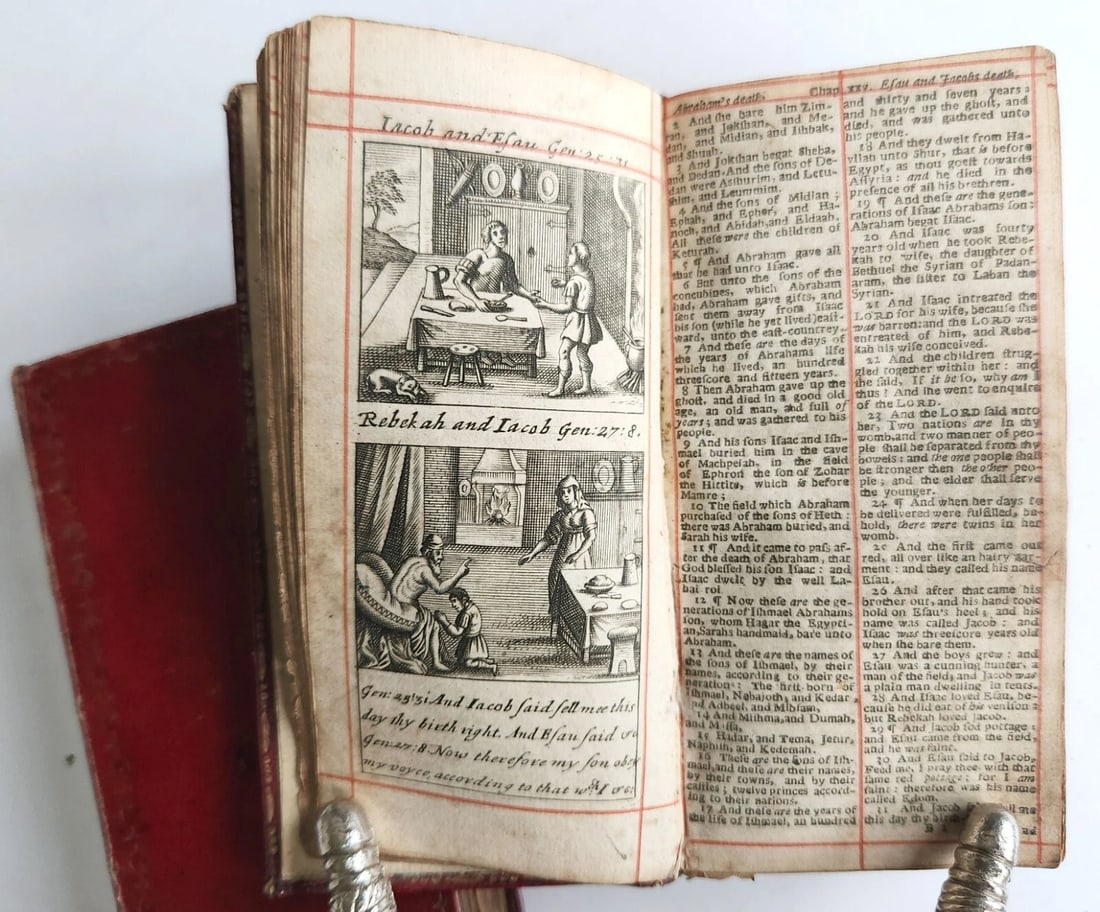 Iacob and Esau Gen: 25: 31.
Rebekah and Iacob Gen: 27: 8.
Gen: 25: 31. And Iacob ſaid ſell mee this
day thy birth right. And Eſau ſaid &c
Gen: 27: 8. Now therefore my ſon obey
my voyce, according to that wch I &c:
Abraham's death. Chap. xxv. Eſau and Jacobs death.
2 And ſhe bare him Zim-
ran, and Jokſhan, and Me-
dan, and Midian, and Iſhbak,
and Shuah.
3 And Jokſhan begat Sheba,
and Dedan. And the ſons of De-
dan were Asſhurim, and Letu-
ſhim, and Leummim.
4 And the ſons of Midian;
Ephah, and Epher, and Ha-
noch, and Abidah, and Eldaah.
All theſe were the children of
Keturah.
5 ¶ And Abraham gave all
that he had unto Iſaac.
6 But unto the ſons of the
concubines, which Abraham
had, Abraham gave gifts, and
ſent them away from Iſaac
his ſon (while he yet lived) eaſt-
ward, unto the eaſt-countrey.
7 And theſe are the days of
the years of Abrahams life
which he lived, an hundred
threeſcore and fifteen years.
8 Then Abraham gave up the
ghoſt, and died in a good old
age, an old man, and full of
years; and was gathered to his
people.
9 And his ſons Iſaac and Iſh-
mael buried him in the cave
of Machpelah, in the field
of Ephron the ſon of Zohar
the Hittite, which is before
Mamre;
10 The field which Abraham
purchaſed of the ſons of Heth:
there was Abraham buried, and
Sarah his wife.
11 ¶ And it came to paſs af-
ter the death of Abraham, that
God bleſſed his ſon Iſaac: and
Iſaac dwelt by the well La-
hai roi.
12 ¶ Now theſe are the ge-
nerations of Iſhmael Abrahams
ſon, whom Hagar the Egypti-
an, Sarahs handmaid, bare unto
Abraham.
13 And theſe are the names of
the ſons of Iſhmael, by their
names, according to their ge-
nerations: The firſt born of
Iſhmael, Nebajoth, and Kedar,
and Adbeel, and Mibſam,
14 And Miſhma, and Dumah,
and Maſſa,
15 Hadar, and Tema, Jetur,
Naphiſh, and Kedemah.
16 Theſe are the ſons of Iſh-
mael, and theſe are their names,
by their towns, and by their
caſtles; twelve princes accord-
ing to their nations.
17 And theſe are the years of
the life of Iſhmael, an hundred
and thirty and ſeven years:
and he gave up the ghoſt, and
died, and was gathered unto
his people.
18 And they dwelt from Ha-
vilah unto Shur, that is before
Egypt, as thou goeſt towards
Aſſyria: and he died in the
preſence of all his brethren.
19 ¶ And theſe are the gene-
rations of Iſaac Abrahams ſon:
Abraham begat Iſaac.
20 And Iſaac was fourty
years old when he took Rebe-
kah to wife, the daughter of
Bethuel the Syrian of Padan-
aram, the ſiſter to Laban the
Syrian.
21 And Iſaac intreated the
LORD for his wife, becauſe ſhe
was barren: and the LORD was
entreated of him, and Rebe-
kah his wife conceived.
22 And the children ſtrug-
gled together within her: and
ſhe ſaid, If it be ſo, why am I
thus? And ſhe went to enquire
of the LORD.
23 And the LORD ſaid unto
her, Two nations are in thy
womb, and two manner of peo-
ple ſhall be ſeparated from thy
bowels: and the one people ſhall
be ſtronger then the other peo-
ple; and the elder ſhall ſerve
the younger.
24 ¶ And when her days to
be delivered were fulfilled, be-
hold, there were twins in her
womb.
25 And the firſt came out
red, all over like an hairy gar-
ment: and they called his name
Eſau.
26 And after that came his
brother out, and his hand took
hold on Eſau's heel; and his
name was called Jacob: and
Iſaac was threeſcore years old
when ſhe bare them.
27 And the boys grew: and
Eſau was a cunning hunter, a
man of the field; and Jacob was
a plain man dwelling in tents.
28 And Iſaac loved Eſau, be-
cauſe he did eat of his veniſon:
but Rebekah loved Jacob.
29 ¶ And Jacob ſod pottage:
and Eſau came from the field,
and he was faint.
30 And Eſau ſaid to Jacob,
Feed me, I pray thee, with that
ſame red pottage; for I am
faint: therefore was his name
called Edom.
31 And Jacob
this day thy birth